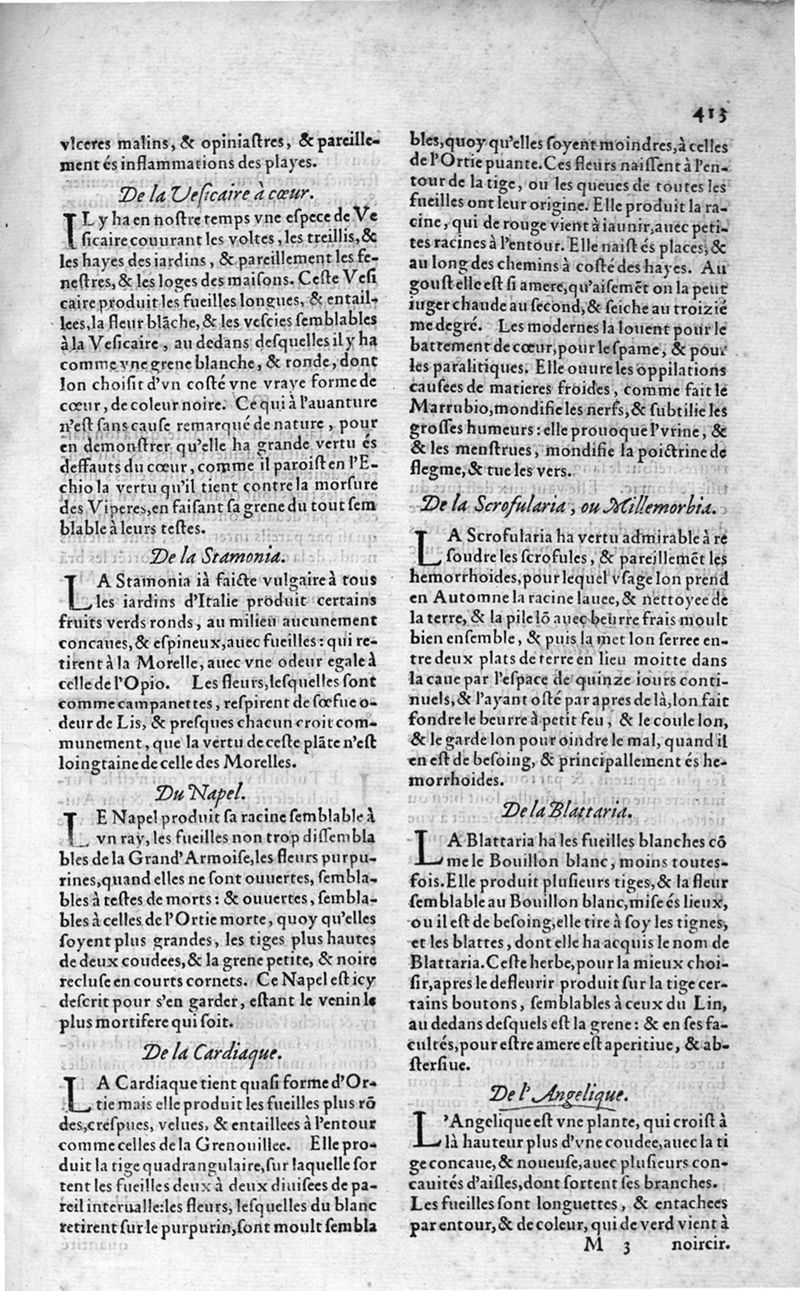 413
vlceres malins, & opiniaſtres, & pareille-
ment és inflammations des playes.
De la Veſicaire à cœur.
IL y ha en noſtre temps vne eſpece de Ve
ſicaire couurant les voltes, les treillis, &
les hayes des iardins, & pareillement les fe-
neſtres, & les loges des maiſons. Ceſte Veſi
caire produit les fueilles longues, & entail-
lees, la fleur blãche, & les veſcies ſemblables
à la Veſicaire, au dedans deſquelles il y ha
comme vne grene blanche, & ronde, dont
lon choiſit d'vn coſté vne vraye forme de
cœur, de coleur noire. Ce qui à l'auanture
n'eſt ſans cauſe remarqué de nature, pour
en demonſtrer qu'elle ha grande vertu és
deffauts du cœur, comme il paroiſt en l'E-
chio la vertu qu'il tient contre la morſure
des Viperes, en faiſant ſa grene du tout ſem
blable à leurs teſtes.
De la Stamonia.
LA Stamonia ià faiſte vulgaire à tous
les iardins d'Italie produit certains
fruits verds ronds, au milieu aucunement
concaues, & eſpineux, auec fueilles: qui re-
tirent à la Morelle, auec vne odeur egale à
celle de l'Opio. Les fleurs, leſquelles ſont
comme campanettes, reſpirent de ſœfue o-
deur de Lis, & preſques chacun croit com-
munement, que la vertu de ceſte plãte n'eſt
loingtaine de celle des Morelles.
Du Napel.
LE Napel produit ſa racine ſemblable à
vn ray, les fueilles non trop diſſembla
bles de la Grand'Armoiſe, les fleurs purpu-
rines, quand elles ne ſont ouuertes, ſembla-
bles à teſtes de morts: & ouuertes, ſembla-
bles à celles de l'Ortie morte, quoy qu'elles
ſoyent plus grandes, les tiges plus hautes
de deux coudees, & la grene petite, & noire
recluſe en courts cornets. Ce Napel eſt icy
deſcrit pour s'en garder, eſtant le venin le
plus mortifere qui ſoit.
De la Cardiaque.
LA Cardiaque tient quaſi forme d'Or-
tie mais elle produit les fueilles plus rõ
des, creſpues, velues, & entaillees à l'entour
comme celles de la Grenouillee. Elle pro-
duit la tige quadrangulaire, ſur laquelle ſor
tent les fueilles deux à deux diuiſees de pa-
reil interualle: les fleurs, leſquelles du blanc
retirent ſur le purpurin, ſont moult ſembla
bles, quoy qu'elles ſoyent moindres, à celles
de l'Ortie puante. Ces fleurs naiſſent à l'en-
tour de la tige, ou les queues de toutes les
fueilles ont leur origine. Elle produit la ra-
cine, qui de rouge vient à iaunir, auec peti-
tes racines à l'entour. Elle naiſt és places, &
au long des chemins à coſté des hayes. Au
gouſt elle eſt ſi amere, qu'aiſemẽt on la peut
iuger chaude au ſecond, & ſeiche au troizié
me degré. Les modernes la louent pour le
battement de cœur, pour le ſpame, & pour
les paralitiques. Elle ouure les oppilations
cauſees de matieres froides, comme fait le
Marrubio, mondifie les nerfs, & ſubtilie les
groſſes humeurs: elle prouoque l'vrine, &
& les menſtrues, mondifie la poictrine de
flegme, & tue les vers.
De la Scrofularia, ou Millemorbia.
LA Scrofularia ha vertu admirable à re
ſoudre les ſcrofules, & pareillemẽt les
hemorrhoides, pour lequel vſage lon prend
en Automne la racine lauee, & nettoyee de
la terre, & la pile lõ auec beurre frais moult
bien enſemble, & puis la met lon ſerree en-
tre deux plats de terre en lieu moitte dans
la caue par l'eſpace de quinze iours conti-
nuels, & l'ayant oſté par apres de là, lon fait
fondre le beurre à petit feu, & le coule lon,
& le garde lon pour oindre le mal, quand il
en eſt de beſoing, & principallement és he-
morrhoides.
De la Blattaria.
LA Blattaria ha les fueilles blanches cõ
me le Bouillon blanc, moins toutes-
fois. Elle produit pluſieurs tiges, & la fleur
ſemblable au Bouillon blanc, miſe és lieux,
ou il eſt de beſoing, elle tire à ſoy les tignes,
et les blattes, dont elle ha acquis le nom de
Blattaria. Ceſte herbe, pour la mieux choi-
ſir, apres le defleurir produit ſur la tige cer-
tains boutons, ſemblables à ceux du Lin,
au dedans deſquels eſt la grene: & en ſes fa-
cultés, pour eſtre amere eſt aperitiue, & ab-
ſterſiue.
De l'Angelique.
L'Angelique eſt vne plante, qui croiſt à
là hauteur plus d'vne coudee, auec la ti
ge concaue, & noueuſe, auec pluſieurs con-
cauités d'aiſles, dont ſortent ſes branches.
Les fueilles ſont longuettes, & entachees
par entour, & de coleur, qui de verd vient à
M 3 noircir.